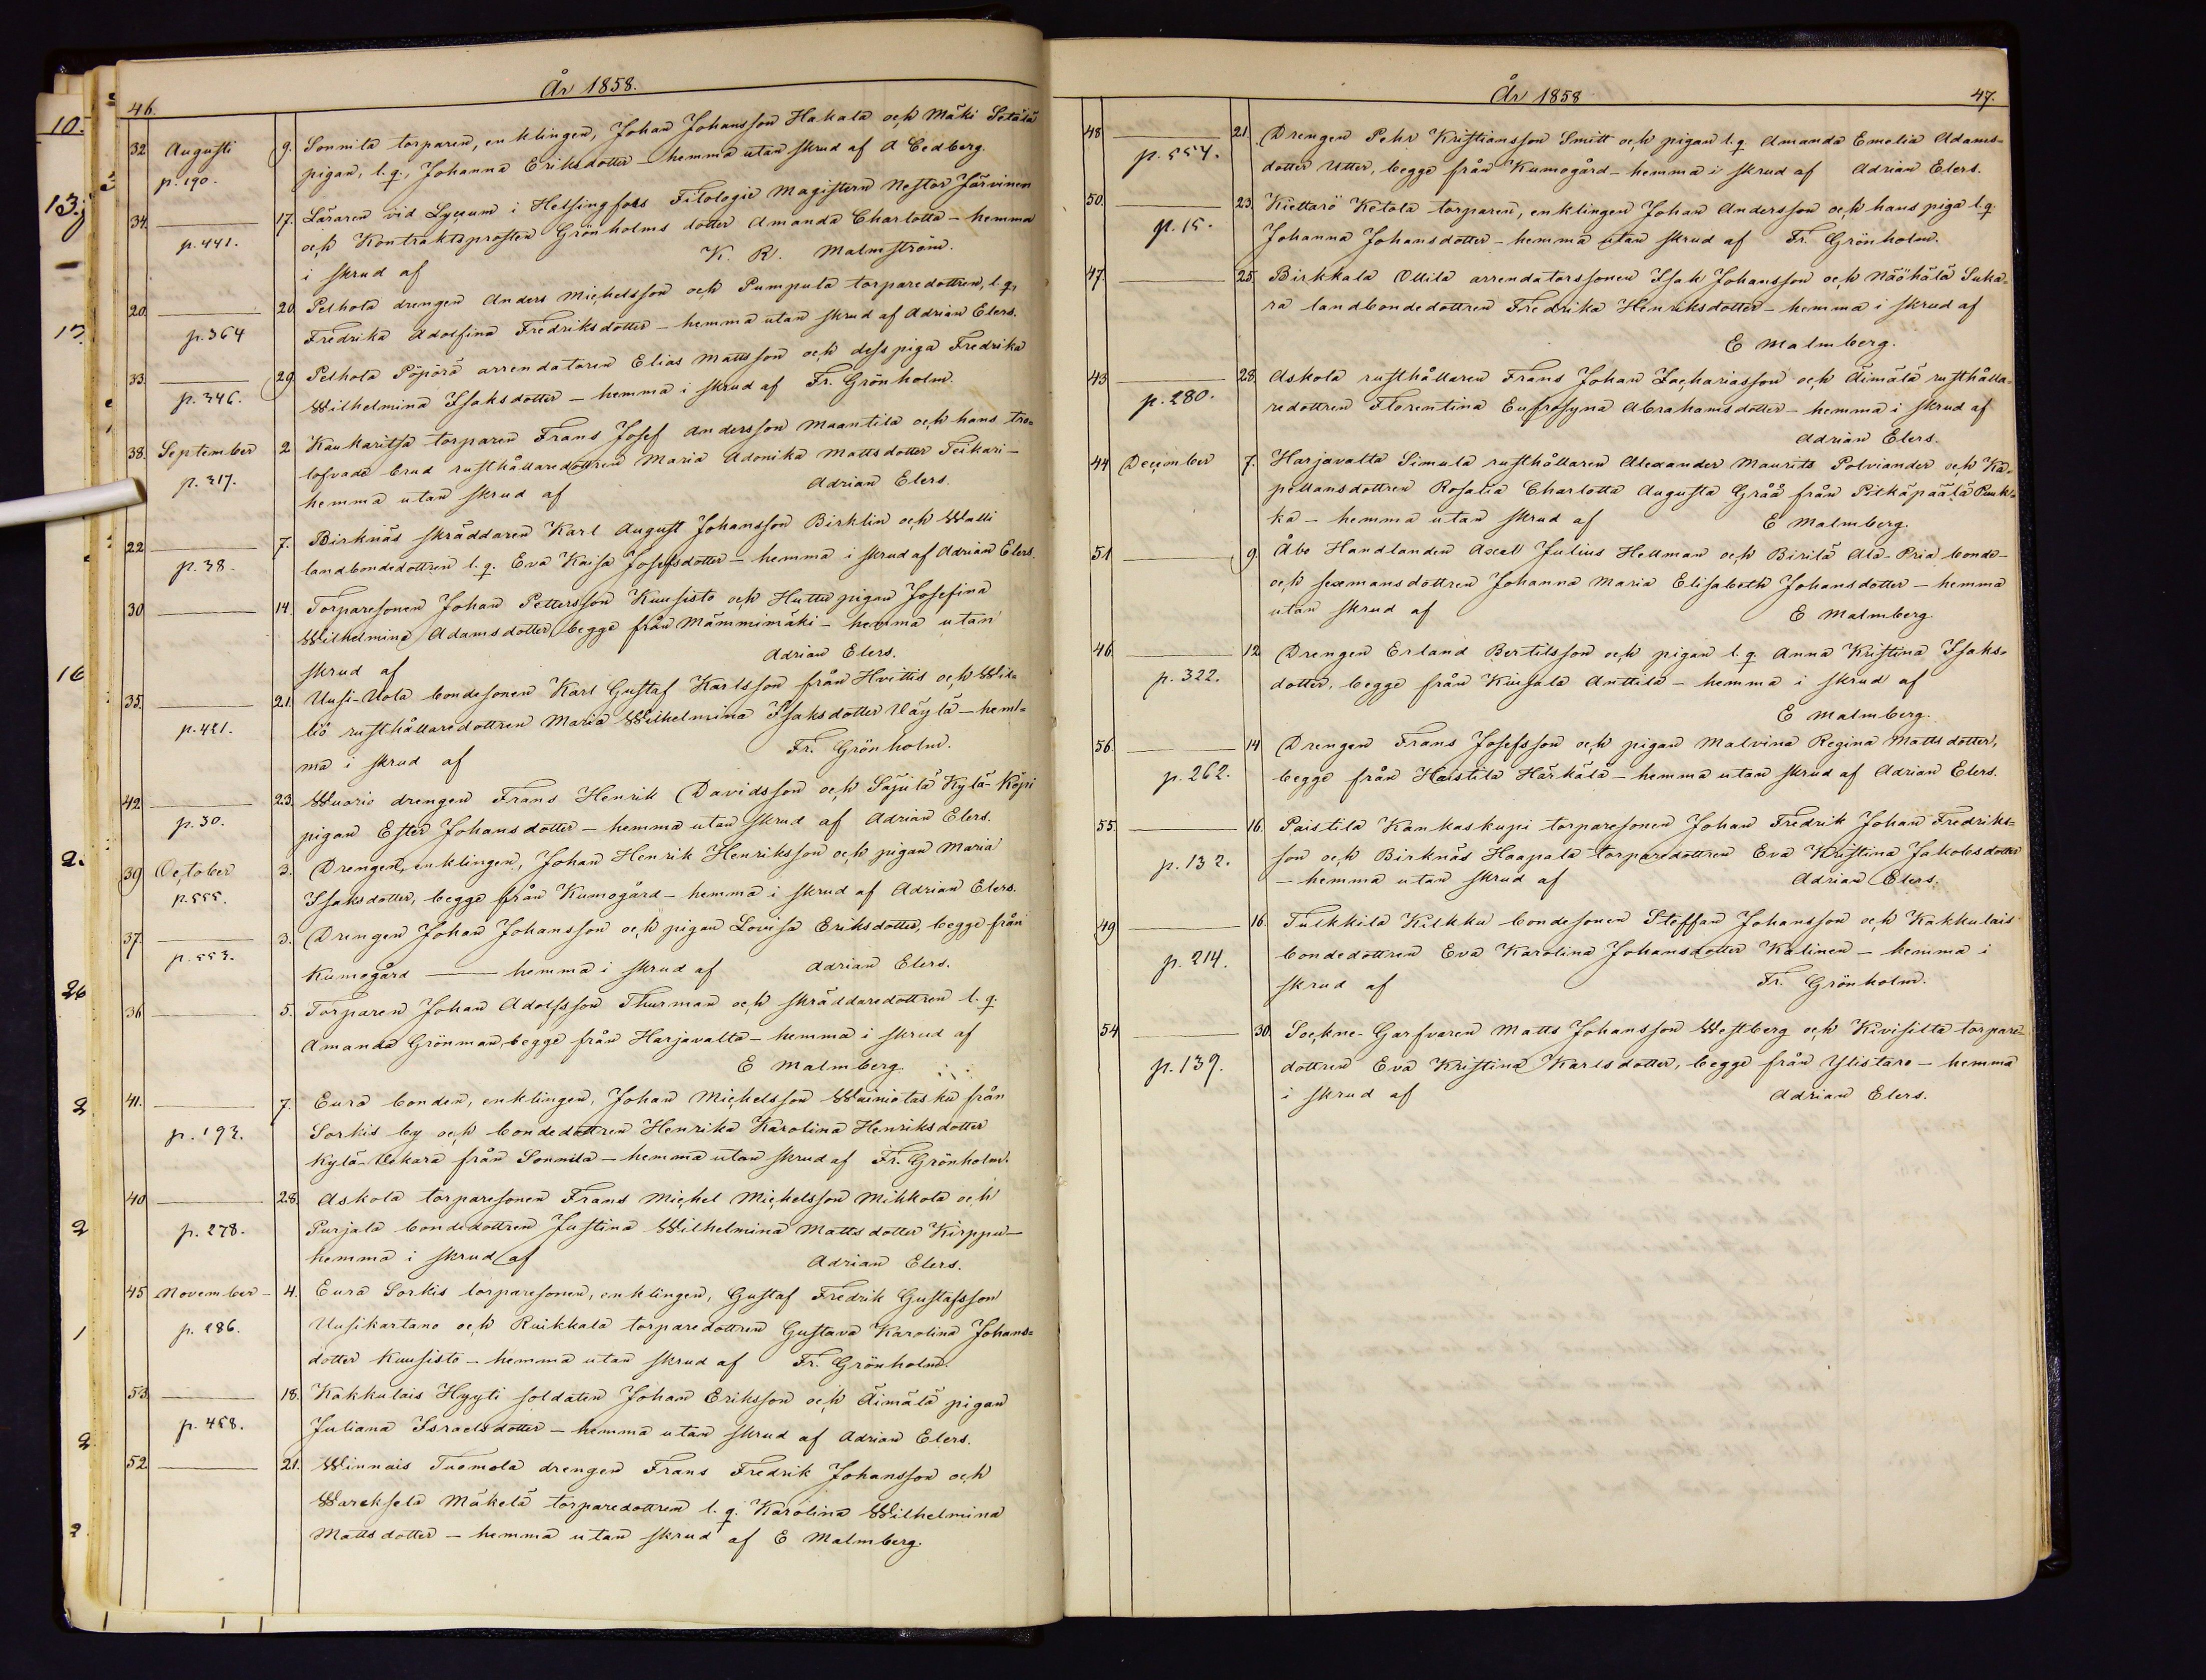 46.
År 1858.
32 Augusti 9. Sonnila torparen, enklingen, Johan Johansson Hakala och Mäki Setälä
p. 190. pigan, l. q., Johanna Eriksdotter – hemma utan skrud af A Cedberg.
34. 17. Läraren vid Lyceum i Helsingfors Filologie Magistern Nestor Järvinen
p. 441. och Kontraktsprosten Grönholms dotter Amanda Charlotta – hemma
i skrud af K. R. Malmström.
20. 20. Pelhola drengen Anders Michelsson och Pumpula torparedottren, l. q.,
p. 364 Fredrika Adolfina Fredriksdotter – hemma utan skrud af Adrian Elers.
33. 29 Pelhola Pöpörä arrendatoren Elias Mattsson och dess piga Fredrika
p. 346. Wilhelmina Isaksdotter – hemma i skrud af Fr. Grönholm.
38. September 2 Kauharitsa torparen Frans Josef Andersson Maantila och hans tro=
p. 317. lofvade brud rusthållaredottren Maria Adonika Mattsdotter Teikari –
hemma utan skrud af Adrian Elers.
22 7. Birknäs skräddaren Karl August Johansson Birklin och Walli
p. 38. landbondedottren l. q. Eva Kaisa Josefsdotter – hemma i skrud af Adrian Elers.
30 14. Torparesonen Johan Pettersson Kuusisto och Huttu pigan Josefina
Wilhelmina Adamsdotter, begge från Mämmimäki – hemma utan
skrud af Adrian Elers.
35. 21. Uusi-Uola bondesonen Karl Gustaf Karlsson från Hvittis och Wil=
p. 421. liö rusthållaredottren Maria Wilhelmina Isaksdotter Väylä – hem=
ma i skrud af Fr. Grönholm.
42 23. Wuorio drengen Frans Henrik Davidsson och Säjulä Kylä-Köpi
p. 30. pigan Ester Johansdotter – hemma utan skrud af Adrian Elers.
39 October 3. Drengen, enklingen, Johan Henrik Henriksson och pigan Maria
p. 555. Isaksdotter, begge från Kumogård – hemma i skrud af Adrian Elers.
37. 3. Drengen Johan Johansson och pigan Lovisa Eriksdotter, begge från
p. 553. Kumogård – hemma i skrud af Adrian Elers.
36 5. Torparen Johan Adolfsson Thurman och skräddaredottren l. q.
Amanda Grönman, begge från Harjavalta – hemma i skrud af
E Malmberg.
41. 7. Eura bonden, enklingen, Johan Michelsson Wainiotasku från
p. 193. Sorkis by och bondedottren Henrika Karolina Henriksdotter
Kylä-Uokara från Sonnila – hemma utan skrud af Fr. Grönholm.
40 28. Askola torparesonen Frans Michel Michelsson Mikkola och
p. 278. Purjala bondedottren Justina Wilhelmina Mattsdotter Kirppu –
hemma i skrud af Adrian Elers.
45 November – 4. Eura Sorkis torparesonen, enklingen, Gustaf Fredrik Gustafsson
p. 286. Uusikartano och Ruikkala torparedottren Gustava Karolina Johans=
dotter Kuusisto – hemma utan skrud af Fr. Grönholm.
53. 18. Kakkulais Hyyti soldaten Johan Eriksson och Äimälä pigan
p. 458. Juliana Israelsdotter – hemma utan skrud af Adrian Elers.
52 21. Winnais Tuomola drengen Frans Fredrik Johansson och
Wareksela Mäkelä torparedottren l. q. Karolina Wilhelmina
Mattsdotter – hemma utan skrud af E Malmberg.
År 1858
47.
48 21. Drengen Pehr Kristiansson Smitt och pigan l. q. Amanda Emelia Adams=
p. 554. dotter Utter, begge från Kumogård – hemma i skrud af Adrian Elers.
50. 23. Kiettarö Ketola torparen, enklingen Johan Andersson och hans piga l. q.
p. 15. Johanna Johansdotter – hemma utan skrud af Fr. Grönholm.
47 25. Birkkala Ollila arrendatorssonen Isak Johansson och Nääkälä Suka=
ra landbondedottren Fredrika Henriksdotter – hemma i skrud af
E Malmberg.
43 28. Askola rusthållaren Frans Johan Zachariasson och Äimälä rusthålla=
p. 280. redottren Florentina Eufrosyna Abrahamsdotter – hemma i skrud af
Adrian Elers.
44 December 7. Harjavalta Simula rusthållaren Alexander Maurits Polviander och Ka=
pellansdottren Rosalia Charlotta Augusta Gråå från Pitkäpäälä Puuk=
ka – hemma utan skrud af E Malmberg.
51 9 Åbo Handlanden Axel Julius Hellman och Birilä Ala-Pria bonde-
och sexmansdottren Johanna Maria Elisabeth Johansdotter – hemma
utan skrud af E Malmberg
46 12 Drengen Erland Bertilsson och pigan l. q. Anna Kristina Isaks=
p. 322. dotter, begge från Kuisala Anttila – hemma i skrud af
E Malmberg.
56. 14 Drengen Frans Josefsson och pigan Malvina Regina Mattsdotter,
p. 262. begge från Haistila Härkälä – hemma utan skrud af Adrian Elers.
55. 16. Paistila Kankaskupi torparesonen Johan Fredrik Johan Fredriks=
p. 132. son och Birknäs Haapala torparedottren Eva Kristina Jakobsdotter
– hemma utan skrud af Adrian Elers.
49 16. Tulkkila Kilkku bondesonen Steffan Johansson och Kakkulais
p. 214. bondedottren Eva Karolina Johansdotter Kalinen – hemma i
skrud af Fr. Grönholm.
54 30. Sockne-Garfvaren Matts Johansson Westberg och Kivisilta torpare=
p. 139. dottren Eva Kristina Karlsdotter, begge från Ylistaro – hemma
i skrud af Adrian Elers.